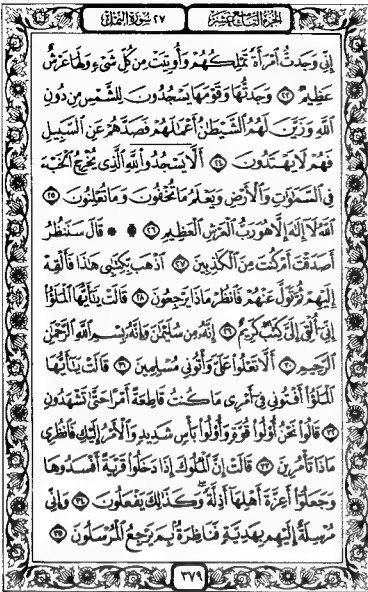 الجزء التاسع عشر ٢٧ سورة النمل
إِنِّى وَجَدتُّ ٱمْرَأَةً تَمْلِكُهُمْ وَأُوتِيَتْ مِن كُلِّ شَىْءٍ وَلَهَا عَرْشٌ
عَظِيمٌ ٢٣ وَجَدتُّهَا وَقَوْمَهَا يَسْجُدُونَ لِلشَّمْسِ مِن دُونِ
ٱللَّهِ وَزَيَّنَ لَهُمُ ٱلشَّيْطَٰنُ أَعْمَٰلَهُمْ فَصَدَّهُمْ عَنِ ٱلسَّبِيلِ
فَهُمْ لَا يَهْتَدُونَ ٢٤ أَلَّا يَسْجُدُوا۟ لِلَّهِ ٱلَّذِى يُخْرِجُ ٱلْخَبْءَ
فِى ٱلسَّمَٰوَٰتِ وَٱلْأَرْضِ وَيَعْلَمُ مَا تُخْفُونَ وَمَا تُعْلِنُونَ ٢٥
ٱللَّهُ لَآ إِلَٰهَ إِلَّا هُوَ رَبُّ ٱلْعَرْشِ ٱلْعَظِيمِ ٢٦ قَالَ سَنَنظُرُ
أَصَدَقْتَ أَمْ كُنتَ مِنَ ٱلْكَٰذِبِينَ ٢٧ ٱذْهَب بِّكِتَٰبِى هَٰذَا فَأَلْقِهْ
إِلَيْهِمْ ثُمَّ تَوَلَّ عَنْهُمْ فَٱنظُرْ مَاذَا يَرْجِعُونَ ٢٨ قَالَتْ يَٰٓأَيُّهَا ٱلْمَلَؤُا۟
إِنِّىٓ أُلْقِىَ إِلَىَّ كِتَٰبٌ كَرِيمٌ ٢٩ إِنَّهُۥ مِن سُلَيْمَٰنَ وَإِنَّهُۥ بِسْمِ ٱللَّهِ ٱلرَّحْمَٰنِ
ٱلرَّحِيمِ ٣٠ أَلَّا تَعْلُوا۟ عَلَىَّ وَأْتُونِى مُسْلِمِينَ ٣١ قَالَتْ يَٰٓأَيُّهَا
ٱلْمَلَؤُا۟ أَفْتُونِى فِىٓ أَمْرِى مَا كُنتُ قَاطِعَةً أَمْرًا حَتَّىٰ تَشْهَدُونِ
٣٢ قَالُوا۟ نَحْنُ أُو۟لُوا۟ قُوَّةٍ وَأُو۟لُوا۟ بَأْسٍ شَدِيدٍ وَٱلْأَمْرُ إِلَيْكِ فَٱنظُرِى
مَاذَا تَأْمُرِينَ ٣٣ قَالَتْ إِنَّ ٱلْمُلُوكَ إِذَا دَخَلُوا۟ قَرْيَةً أَفْسَدُوهَا
وَجَعَلُوٓا۟ أَعِزَّةَ أَهْلِهَآ أَذِلَّةً ۖ وَكَذَٰلِكَ يَفْعَلُونَ ٣٤ وَإِنِّى
مُرْسِلَةٌ إِلَيْهِم بِهَدِيَّةٍ فَنَاظِرَةٌۢ بِمَ يَرْجِعُ ٱلْمُرْسَلُونَ ٣٥
٣٧٩